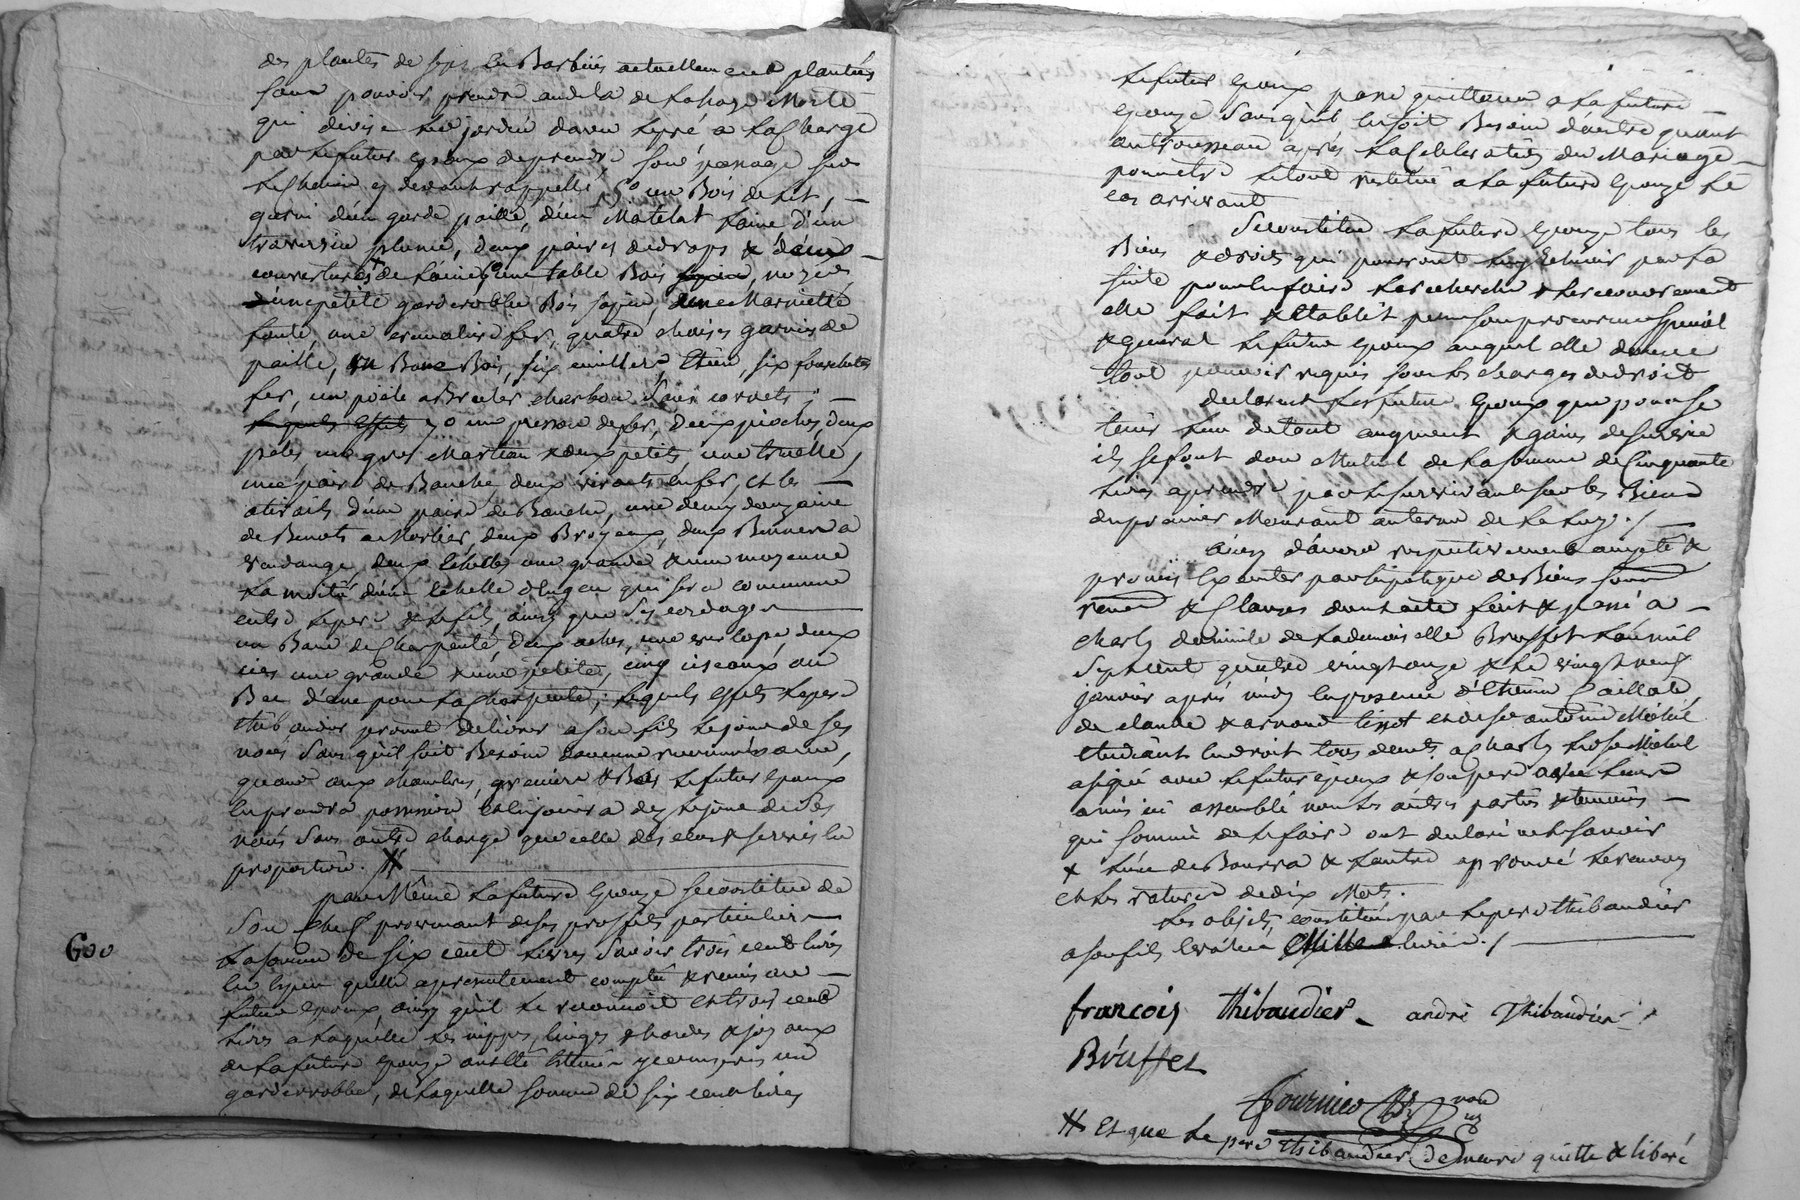 des plantes de seps en Barbües actuellement plantées
sans pouvoir prendre audela de la haye Morte
qui divise le jardin davec le pré a la Charge
par le futur epoux de prendre son passage sur
le Chemin cy devant rappellé, 5o un Bois de lit,
garni d'un garde paille, d'un Matélat laine d'un
traversin plume, deux paires de drops & deux
couvertures de laine 6o une table Bois noyer
d'une petite garderobbe Bois sapin, une Marmitte
fonte, une cremalierre fer, quatre chaises garnies de
paille, un Banc Bois, six cuilliers Etein, six fourchettes
fer, un poële a Bruler charbon & ses cornets;
lesquels effets 7o une pression de fer, deux pioches deux
pèles un gros Marteau & deux petits, une truelle,
une paire de Banche deux rivants en fer, et les
atirails d'une paire de Banche, une demy douzaine
de Benots a Mortier, deux Broyeux, deux Bennes a
vendange, deux Echelles une grande & une moyenne
la moitié d'une Echelle d'engen qui sera commune
entre le pere & le fils, ainsi que les cordages
un Banc de Charpente, deux aches, une deux
cies une grande & une petite, cinq ciseaux, un
Bec d'ane pour la Charpente; lesquels effets le pere
thibaudier promet delivrer a son fils le jour de ses
noces sans qu'il soit Besoin d'aucune reconnoissance,
quant aux chambres, greniers & Bas le futur epoux
en prendra possession et en jouira dez le jour de ses
noces sans autre charge que celle des cens & servis en
proportion. #
par Même la future Epouze se constitue de
Son Chef provenant de ses proffits particuliers
la somme de six cent livres savoir trois cent livres
en espece quelle a presentement compté & remis au
futur epoux, ainsy qu'il le reconnoit et trois cent
livres a laquelle les nippes, linges & hardes & joyaux
de la future Epouze ont été Estimés y compris une
garderobbe, de laquelle somme de six cent livres
600
le futur Epoux passe quittance a la future
epouze Sans qu'il en soit Besoin d'autre quant
au trousseau après la Célébration du Mariage
promettre le tout restitué a la future Epouze le
cas arrivant
Se constitue la future Epouze tous les
Biens & droits qui pourront luy Echeoir par la
suite pour en faire la recherche & le recouvrement
elle fait & Etablit pour son procureur Special
& general le futur epoux auquel elle donne
tout pouvoir requis sous les charges de droit
declarent les futurs Epoux que pour se
tenir lieu de tout augment & gains de survie
ils se font don Mutuel de la somme de Cinquante
livres a prendre par le survivant sur les Biens
du premier Mourant au terme de la loy ./
ainsy d'avenu respectivement accepté &
promis Executer par hipoteque de Biens
& Clauses dont acte fait & passé a
Charly domicile de la demoiselle Brussset l'an mil
Sept cent quatre vingt onze & le vingt neuf
janvier après midy En presence d'Etienne Caillat,
de claude & arnaud tissot et de sr antoine Michel
Etudiant en droit tous demts a Charly le sr Michel
a signé avec le futur epoux & son pere avec leurs
amis icy assemblé non les autres parties & temoins
qui sommé de le faire ont declaré ne le savoir
& l'une de Bourra & l'autre aprouvé le renvoy
et les ratures de dix Mots.
Les objets constitués par le pere thibaudier
a son fils Evalué Mille livres ./
francois thibaudier andré Thibaudier
Brúffet
Fournier
# Et que le pere thibaudier demeure quitte & libéré